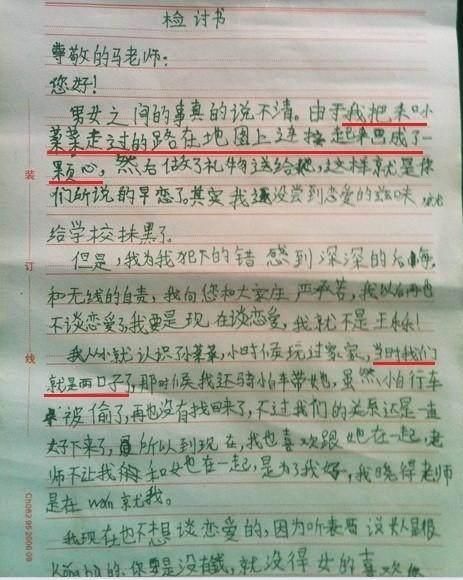 检讨书
尊敬的马老师：
您好！
男女之间的事真的说不清。由于我把和孙
菜菜走过的路在地图上连接起来画成了一
颗心，然后做了礼物送给她，这样就是你
们所说的早恋了。其实我还没尝到恋爱的滋味，就
给学校抹黑了。
但是，我为我犯下的错感到深深的后悔
和无线的自责，我向您和大家庄严承若，我以后再也
不谈恋爱了，我要是现在谈恋爱，我就不是王栋！
我从小就认识孙菜菜，小时候玩过家家，当时我们
就是两口子了，那时候我还骑小白车带她，虽然小白行车
被偷了，再也没有找回来了，不过我们的关系还是一直
好下来了，所以到现在，我也喜欢跟她在一起，老
师不让我和她在一起，是为了我好，我晓得老师
是在wan救我。
我现在也不想谈恋爱的，因为听表哥说女人是很
的，你要是没有钱，就没得女的喜欢你
装
订
线